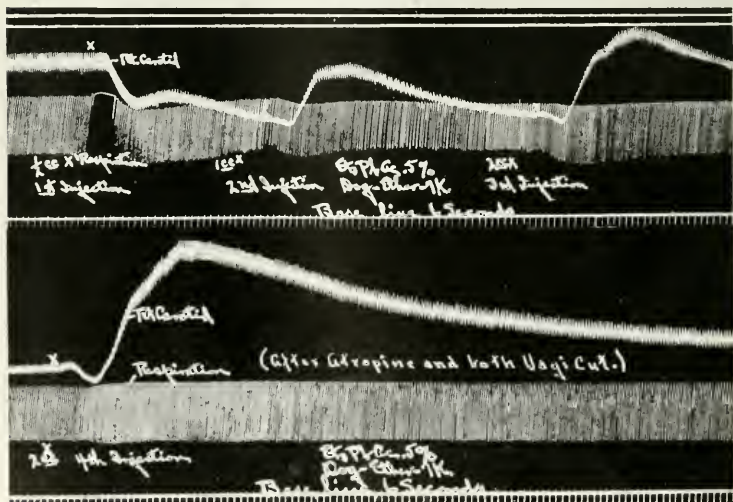 x
Rt Carotid
½ cc x Respiration
1st Injection
1 cc x
2nd Injection
5%
Dog-Ether-7K
2 cc x
3rd Injection
Base line 6 Seconds
Rt Carotid
x
Respiration
(After Atropine and both Vagi Cut.)
4th Injection
5%
Dog-Ether-7K
Base line 6 Seconds